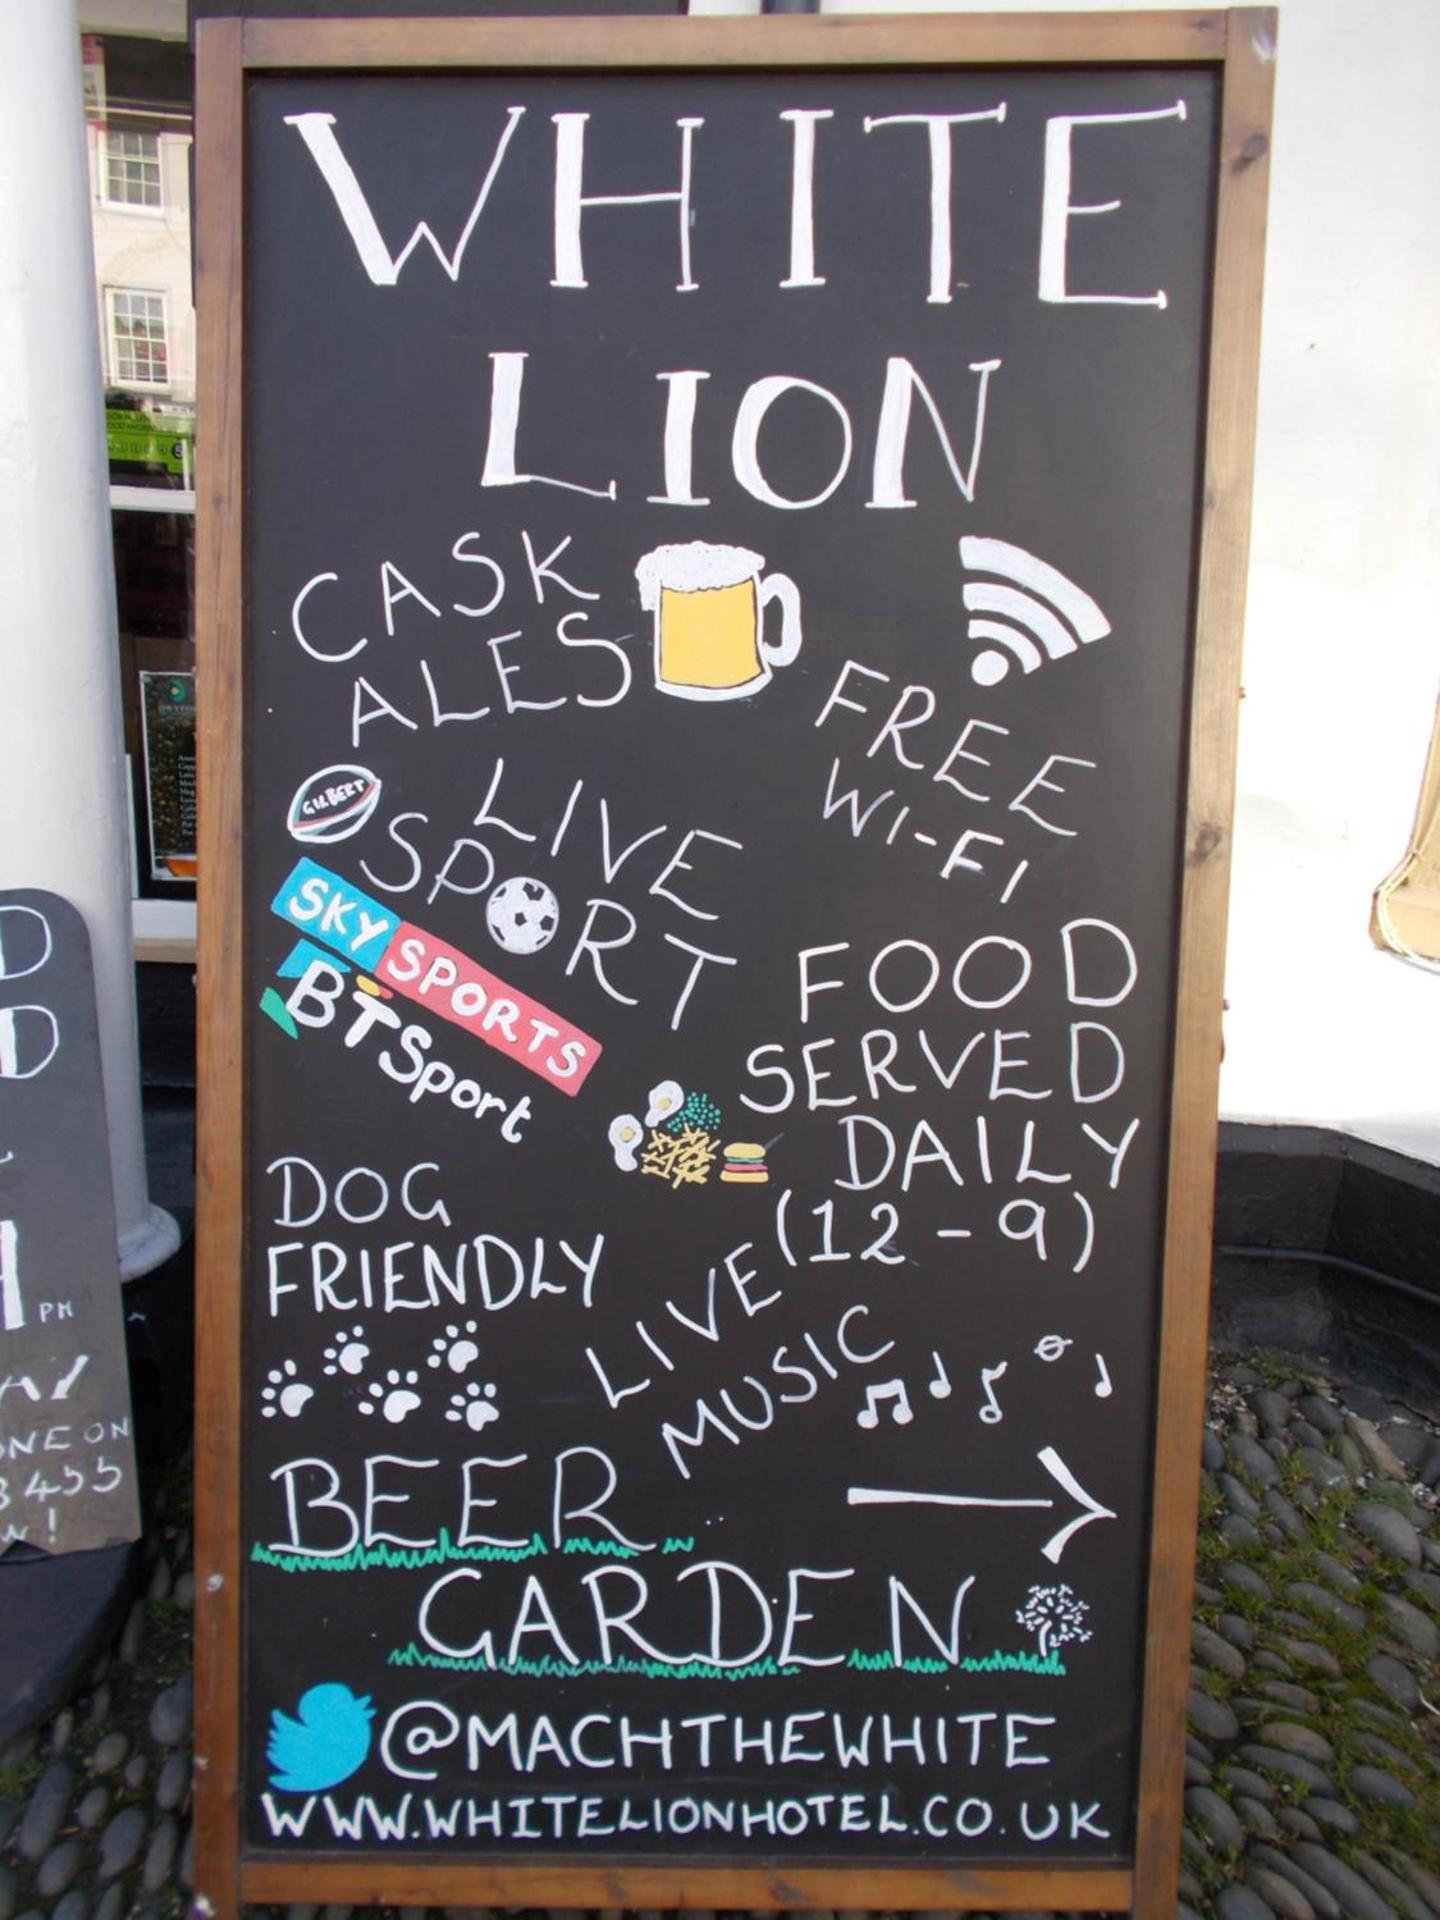 WHITE
LION
CASK
ALES
FREE
WI-FI
GILBERT
LIVE
SPORT
SKY SPORTS
BTSport
FOOD
SERVED
DAILY
(12-9)
DOG
FRIENDLY
LIVE
MUSIC
BEER
GARDEN
@MACHTHEWHITE
WWW.WHITELIONHOTEL.CO.UK
D
D
PM
NE ON
3455
W!